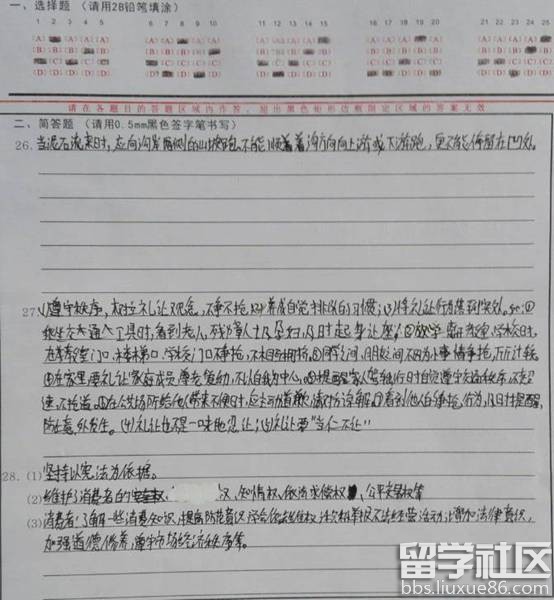 一、选择题 （请用2B铅笔填涂）
1 2 3 4 5 6 7 8 9 10 11 12 13 14 15 16 17 18 19 20 21 22 23 24 25
请在各题目的答题区域内作答，超出黑色矩形边框限定区域的答案无效
二、简答题 （请用0.5mm黑色签字笔书写）
26. 当泥石流来时，应向沟岸两侧的山坡跑，不能顺着沟方向向上游或下游跑，更不能停留在凹处。
27. (1)遵守秩序，树立礼让观念，不争不抢；(2)养成自觉排队的习惯；(3)将礼让行为落到实处。如：①
我坐公交通工具时，看到老人、残障人士及孕妇，及时起身让座；②放学离开教室、学校时，
在教室门口、楼梯口、学校门口不争抢，不相互拥挤；③同学之间，朋友之间不因为小事情争抢，斤斤计较
④在家里要礼让家庭成员，尊老爱幼，不以自我为中心。⑤提醒家人驾驶行时自觉遵守交通秩序，不超
速，不抢道。⑥在公共场所给他人带来不便时，应主动道歉，请对方谅解；⑦看到他人的争抢行为，及时提醒，
防止意外发生。(4)礼让也不是一味地忍让；(5)礼让要"当仁不让"
28. (1)坚持以宪法为依据。
(2)维护了消费者的 权、知情权、依法求偿权、公平交易权等
(3)消费者：了解一些消费知识，提高防范意识 法律意识，
加强道德修养，遵守市场经济秩序等。
留学社区
bbs.liuxue86.com